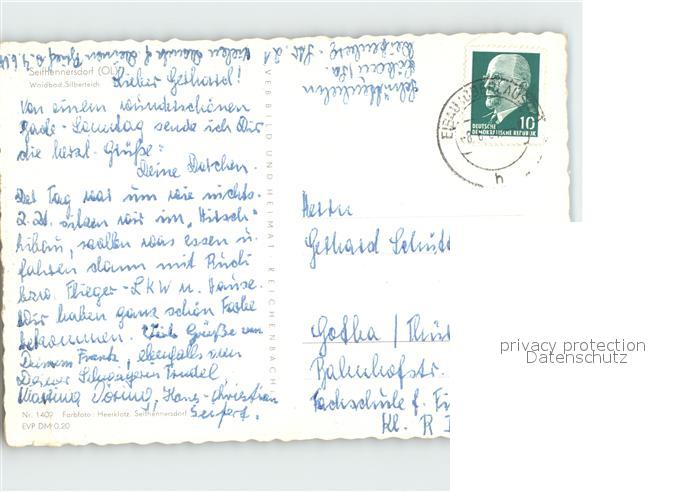 Seifhennersdorf (OL)
Waldbad Silberteich
Lieber Gerhard!
Von einem wunderschönen
Bade-Sonntag sende ich Dir
die herzl. Grüße:
Deine
Der Tag war um wie nichts.
z. Zt. sitzen wir im „Hirsch“
Eibau, wollen was essen u.
fahren dann mit Rudi
bzw. Flieger-LKW n. Hause.
Wir haben ganz schön Farbe
bekommen. Viele Grüße von
Deinem Frank, ebenfalls von
Deiner Schwägerin Trudel,
Martina Döring, Hans-Christian
Seifert.
Nr. 1409 Farbfoto: Heerklotz, Seifhennersdorf
EVP DM 0,20
VEB BILD UND HEIMAT · REICHENBACH
10
DEUTSCHE
DEMOKRATISCHE REPUBLIK
EIBAU
h
Herrn
Gerhard Schütt
Gotha / Thür
Bahnhofstr.
Fachschule f. Fi
Kl. R I
privacy protection
Datenschutz